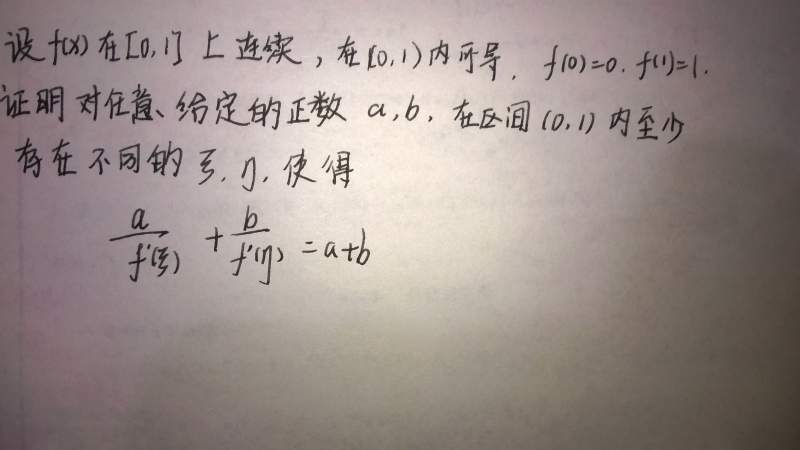 设f(x)在[0,1]上连续,在[0,1)内可导. f(0)=0. f(1)=1.
证明对任意、给定的正数 a,b. 在区间(0,1)内至少
存在不同的ξ,η,使得
a/f'(ξ) + b/f'(η) = a+b